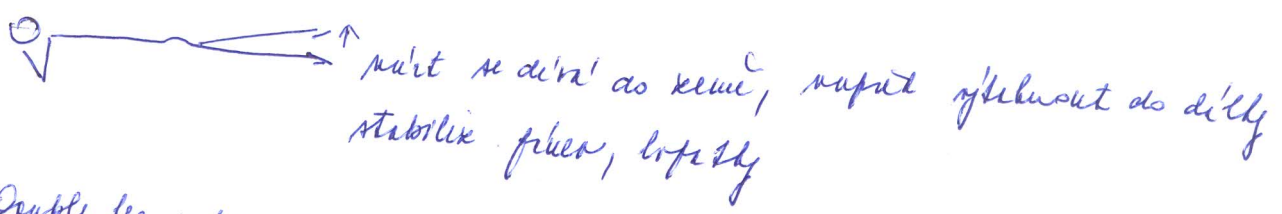 nárt se dívá do země, napnout vytáhnout do dálky
stabiliz. pánev, lopatky
Double leg